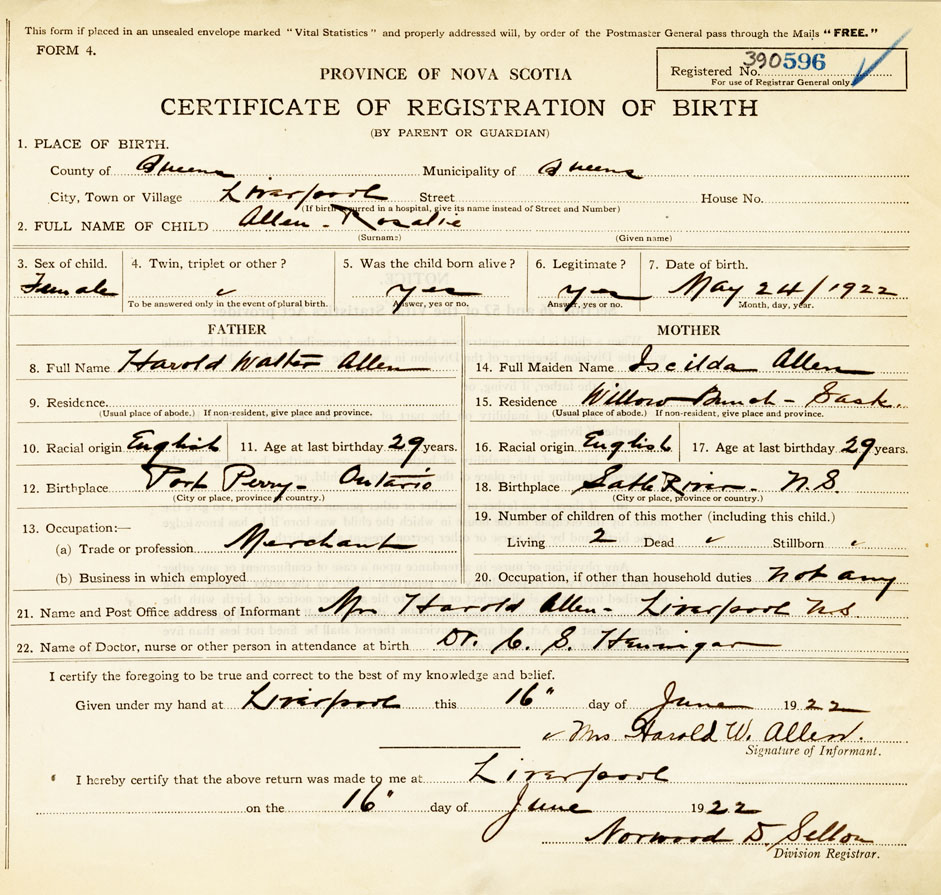 This form if placed in an unsealed envelope marked "Vital Statistics" and properly addressed will, by order of the Postmaster General pass through the Mails "FREE."
FORM 4.
Registered No. 390596
For use of Registrar General only.
PROVINCE OF NOVA SCOTIA
CERTIFICATE OF REGISTRATION OF BIRTH
(BY PARENT OR GUARDIAN)
1. PLACE OF BIRTH.
County of Queens Municipality of Queens
City, Town or Village Liverpool Street House No.
(If birth occurred in a hospital, give its name instead of Street and Number)
2. FULL NAME OF CHILD Allen - Rosalie
(Surname) (Given name)
3. Sex of child. 4. Twin, triplet or other? 5. Was the child born alive? 6. Legitimate? 7. Date of birth.
Female yes yes May 24/1922
To be answered only in the event of plural birth. Answer, yes or no. Answer, yes or no. Month, day, year.
FATHER MOTHER
8. Full Name Harold Walter Allen 14. Full Maiden Name Iscilda Allen
9. Residence. 15. Residence Willow Bunch - Sask.
(Usual place of abode.) If non-resident, give place and province. (Usual place of abode.) If non-resident, give place and province.
10. Racial origin English 11. Age at last birthday 29 years. 16. Racial origin English 17. Age at last birthday 29 years.
12. Birthplace Port Perry - Ontario 18. Birthplace Sable River - N.S.
(City or place, province or country.) (City or place, province or country)
13. Occupation:— 19. Number of children of this mother (including this child.)
(a) Trade or profession Merchant Living 2 Dead Stillborn
(b) Business in which employed 20. Occupation, if other than household duties not any
21. Name and Post Office address of Informant Mrs Harold Allen - Liverpool N.S.
22. Name of Doctor, nurse or other person in attendance at birth Dr. C. S. Hennigar
I certify the foregoing to be true and correct to the best of my knowledge and belief.
Given under my hand at Liverpool this 16" day of June 1922
Mrs Harold W. Allen.
Signature of Informant.
I hereby certify that the above return was made to me at Liverpool
on the 16" day of June 1922
Norwood D. Sellon
Division Registrar.